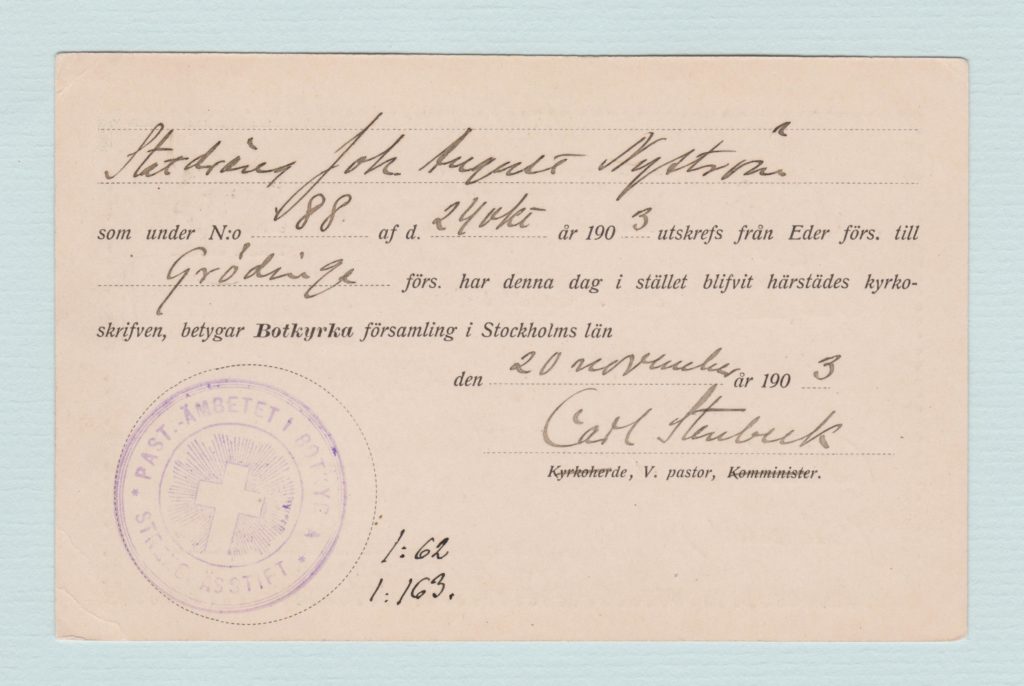 Statdräng Joh August Nyström
som under N:o 88 af d. 24 okt år 1903 utskrefs från Eder förs. till
Grödinge förs. har denna dag i stället blifvit härstädes kyrko-
skrifven, betygar Botkyrka församling i Stockholms län
den 20 november år 1903
Carl Stenbeck
Kyrkoherde, V. pastor, Komminister.
PAST.-ÄMBETET I BOTKYRKA
STRENGNÄS STIFT
1:62
1:163.